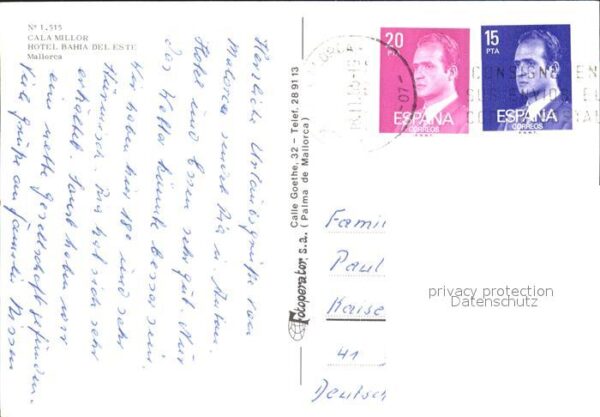 Nº 1.515
CALA MILLOR
HOTEL BAHIA DEL ESTE
Mallorca
Herzliche Urlaubsgrüße von
Malorca sendet Pia u. Anton.
Hotel und Essen sehr gut. Nur
das Wetter könnte besser sein.
Wir haben hier 18° und sehr
Stürmisch. Pia hat sich sehr
erkältet. Sonst haben wir
eine nette Gesellschaft gefunden.
Viele Grüße an Familie
Fotoperator, s.a. Calle Goethe, 32 - Telef. 28 91 13
(Palma de Mallorca)
20
PTA
ESPAÑA
CORREOS
15
PTA
ESPAÑA
CORREOS
CONSIGNE EN
SUS ENVIOS EL
-07-
Famil
Paul
Kaise
41
Deutsch
privacy protection
Datenschutz